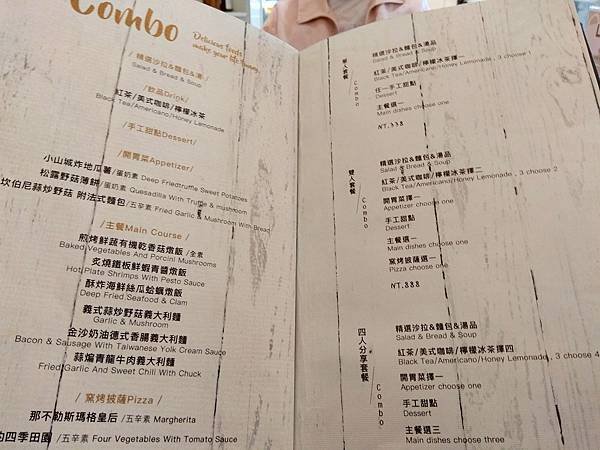 Combo
Delicious foods
make your life funny.
/精選沙拉&麵包&湯/
Salad & Bread & Soup
/飲品Drink/
紅茶/美式咖啡/檸檬冰茶
Black Tea/Americano/Honey Lemonade
/手工甜點Dessert/
/開胃菜Appetizer/
小山城炸地瓜薯/蛋奶素 Deep Friedtruffle Sweet Potatoes
松露野菇薄餅/蛋奶素 Quesadilla With Truffle & mushroom
坎伯尼蒜炒野菇 附法式麵包/五辛素 Fried Garlic & Mushroom With Bread
/主餐Main Course /
煎烤鮮蔬有機乾香菇燉飯 /全素
Baked Vegetables And Porcini Mushrooms
炙燒鐵板鮮蝦青醬燉飯
Hot Plate Shrimps With Pesto Sauce
酥炸海鮮絲瓜蛤蠣燉飯
Deep Fried Seafood & Clam
義式蒜炒野菇義大利麵
Garlic & Mushroom
金沙奶油德式香腸義大利麵
Bacon & Sausage With Taiwanese Yolk Cream Sauce
蒜煸青龍牛肉義大利麵
Fried Garlic And Sweet Chill With Chuck
/ 窯烤披薩Pizza /
那不勒斯瑪格皇后 /五辛素 Margherita
四季田園 /五辛素 Four Vegetables With Tomato Sauce
單人套餐
Combo
精選沙拉&麵包&湯品
Salad & Bread & Soup
紅茶/美式咖啡/檸檬冰茶擇一
Black Tea/Americano/Honey Lemonade , 3 choose 1
任一手工甜點
Dessert
主餐選一
Main dishes choose one
NT.558
雙人套餐
Combo
精選沙拉&麵包&湯品
Salad & Bread & Soup
紅茶/美式咖啡/檸檬冰茶擇二
Black Tea/Americano/Honey Lemonade , 3 choose 2
開胃菜擇一
Appetizer choose one
手工甜點
Dessert
主餐選一
Main dishes choose one
窯烤披薩選一
Pizza choose one
NT.888
四人分享套餐
Combo
精選沙拉&麵包&湯品
Salad & Bread & Soup
紅茶/美式咖啡/檸檬冰茶擇四
Black Tea/Americano/Honey Lemonade , 3 choose 4
開胃菜擇一
Appetizer choose one
手工甜點
Dessert
主餐選三
Main dishes choose three